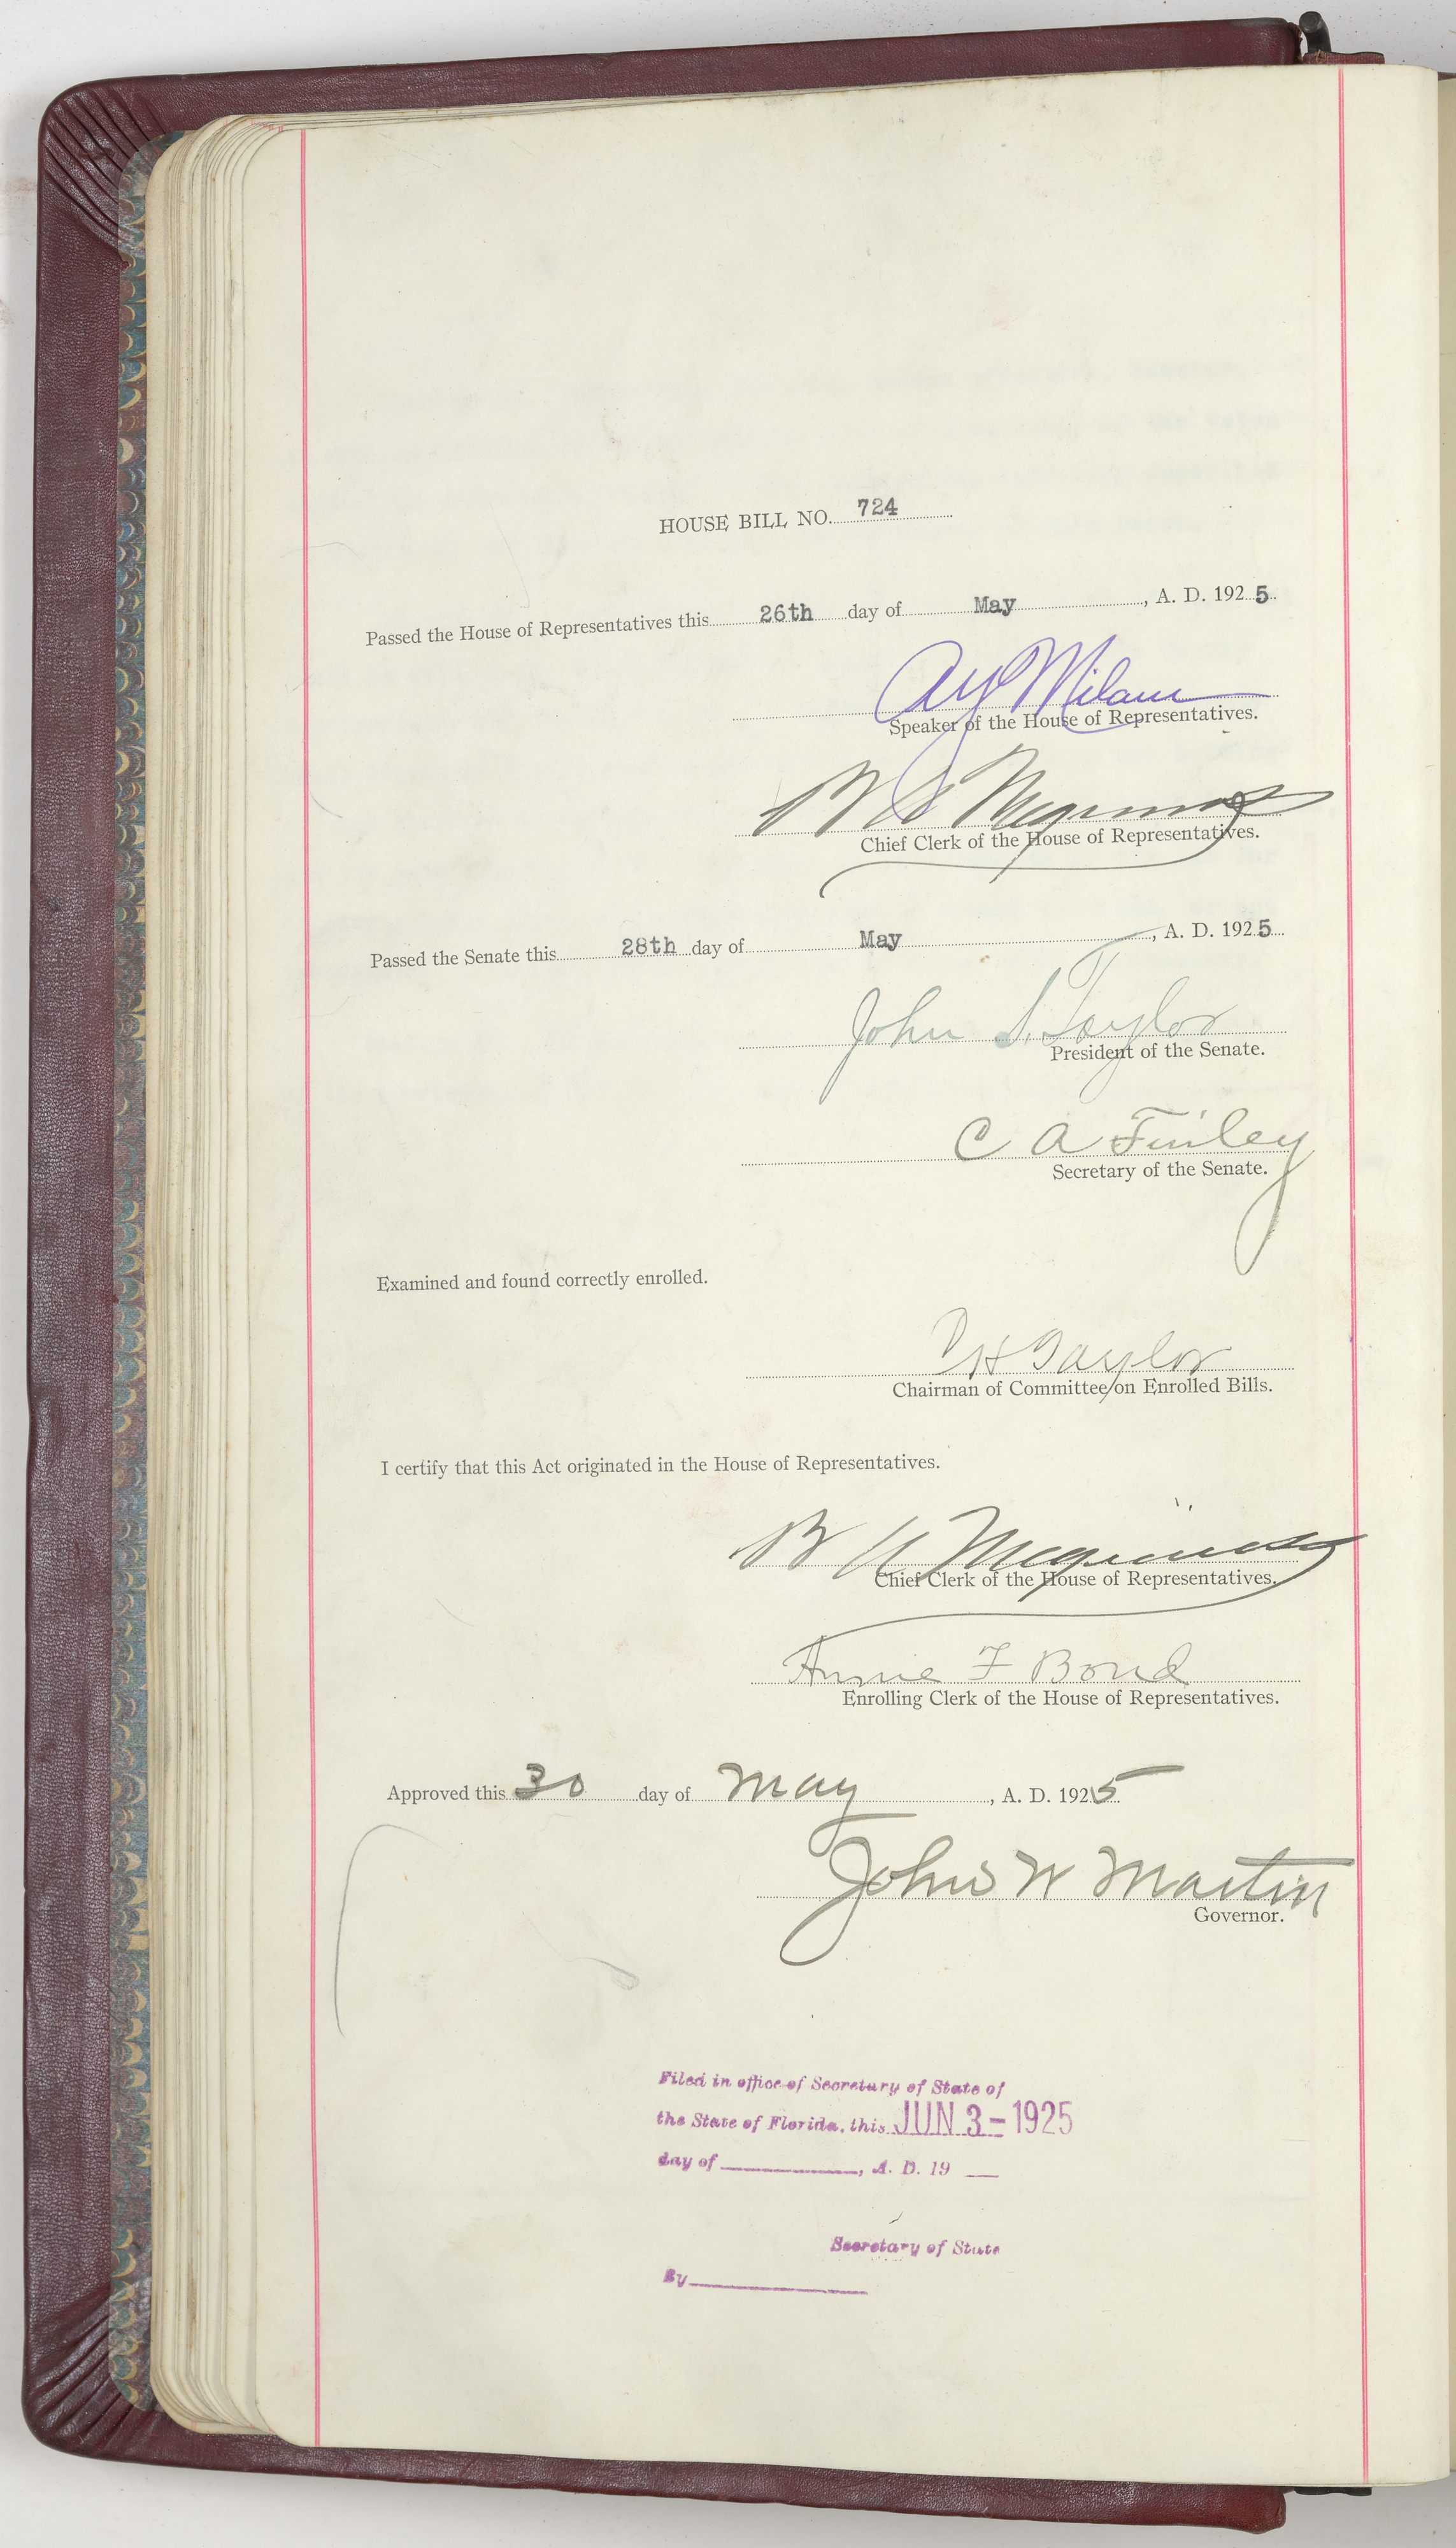 HOUSE BILL NO. 724
Passed the House of Representatives this 26th day of May, A. D. 1925.
A Y Milam
Speaker of the House of Representatives.
B A Meginniss
Chief Clerk of the House of Representatives.
Passed the Senate this 28th day of May, A. D. 1925
John S. Taylor
President of the Senate.
C A Finley
Secretary of the Senate.
Examined and found correctly enrolled.
H Taylor
Chairman of Committee on Enrolled Bills.
I certify that this Act originated in the House of Representatives.
B A Meginniss
Chief Clerk of the House of Representatives.
Annie F Bond
Enrolling Clerk of the House of Representatives.
Approved this 30 day of May, A. D. 1925
John W Martin
Governor.
Filed in office of Secretary of State of
the State of Florida, this JUN 3 - 1925
day of ____, A. D. 19 __
Secretary of State
By____